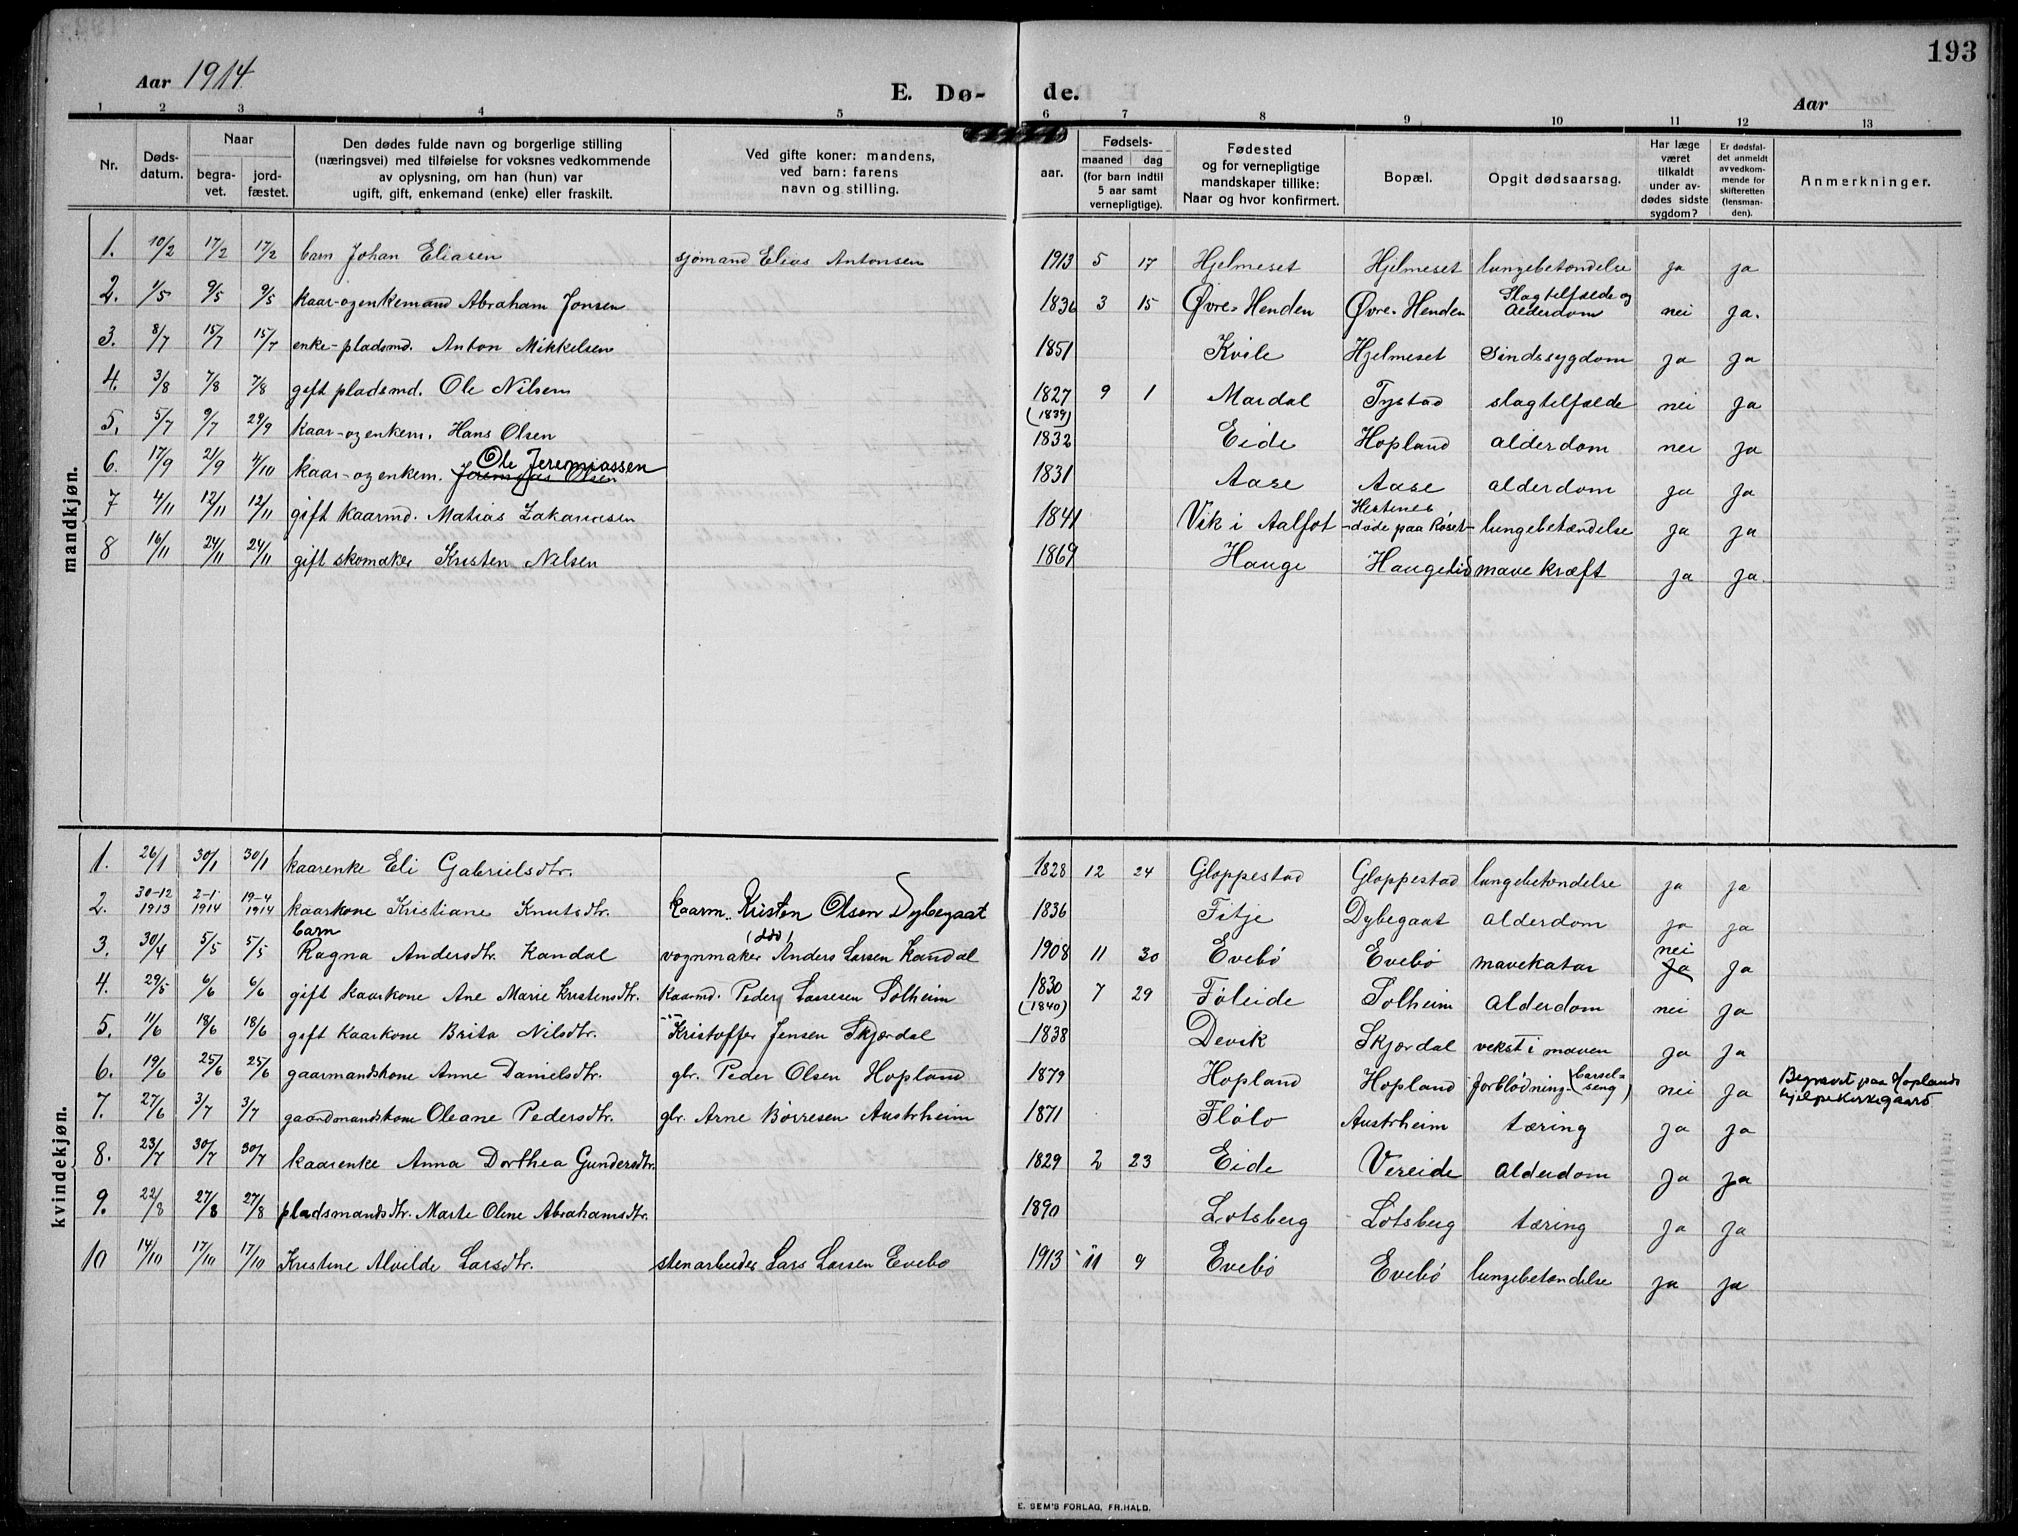 193
Aar 1914
E. Dø- de.
Aar
1 2 3 4 5 6 7 8 9 10 11 12 13
Nr.
Døds-
datum.
Naar
begra-
vet.
jord-
fæstet.
Den dødes fulde navn og borgerlige stilling
(næringsvei) med tilføielse for voksnes vedkommende
av oplysning, om han (hun) var
ugift, gift, enkemand (enke) eller fraskilt.
Ved gifte koner: mandens,
ved barn: farens
navn og stilling.
aar.
Fødsels-
maaned dag
(for barn indtil
5 aar samt
vernepligtige).
Fødested
og for vernepligtige
mandskaper tillike:
Naar og hvor konfirmert.
Bopæl.
Opgit dødsaarsag.
Har læge
været
tilkaldt
under av-
dødes sidste
sygdom?
Er dødsfal-
det anmeldt
av vedkom-
mende for
skifteretten
(lensman-
den).
Anmerkninger.
mandkjøn.
1. 10/2 17/2 17/2 barn Johan Eliasen sjømand Elias Antonsen 1913 5 17 Hjelmeset Hjelmeset lungebetændelse ja ja
2. 1/5 9/5 9/5 kaar-og enkemand Abraham Jonsen 1836 3 15 Øvre-Henden Øvre-Henden Slagtilfælde og Alderdom nei ja.
3. 8/7 15/7 15/7 enke-pladsmd. Anton Mikkelsen 1851 Kvile Hjelmeset Sindssygdom ja ja
4. 3/8 7/8 7/8 gift pladsmd. Ole Nilsen 1827 (1839) 9 1 Mardal Tystad slagtilfælde nei ja
5. 5/7 9/7 29/9 kaar-og enkem. Hans Olsen 1832 Eide Hopland alderdom nei ja
6. 17/9 21/9 4/10 kaar-og enkem. Jeremias Olsen Ole Jeremiassen 1831 Aase Aase alderdom ja ja
7 4/11 12/11 12/11 gift kaarmd. Matias Zakariasen 1841 Vik i Aalfot Hestenes -døde paa Røset- lungebetændelse ja ja
8 16/11 24/11 24/11 gift skomaker Kristen Nilsen 1869 Hauge Haugelid mavekræft ja ja.
kvindekjøn.
1. 26/1 30/1 30/1 kaarenke Eli Gabrielsdtr. 1828 12 24 Gloppestad Gloppestad lungebetændelse ja ja
2. 30-12 1913 2-1 1914 19-4 1914 kaarkone Kristiane Knutsdtr. kaarm. Kristen Olsen Dybegaat 1836 Fitje Dybegaat alderdom ja ja
3. 30/4 5/5 5/5 barn Ragna Andersdtr. Kandal vognmaker (død) Anders Larsen Kandal 1908 11 30 Evebø Evebø mavekatar nei ja ja
4. 29/5 6/6 6/6 gift kaarkone Ane Marie Kristensdtr. Kaarmd. Peder Lassesen Solheim 1830 (1840) 7 29 Føleide Solheim alderdom nei ja
5. 11/6 18/6 18/6 gift kaarkone Brita Nilsdtr. -"- Kristoffer Jensen Skjærdal 1838 Devik Skjærdal vekst i maven ja ja
6. 19/6 25/6 25/6 gaarmandskone Anne Danielsdtr. gbr. Peder Olsen Hopland 1879 Hopland Hopland forblødning (barselseng) nei ja Begravet paa Hoplands hjelpekirkegaard
7. 27/6 3/7 3/7 gaardmandskone Oleane Pedersdtr. gbr. Arne Børresen Austrheim 1871 Fløto Austrheim tæring ja ja
8. 23/7 30/7 30/7 kaarenke Anna Dorthea Gundersdtr. 1829 2 23 Eide Vereide alderdom ja ja
9. 22/8 27/8 27/8 pladsmandsdtr. Marte Oline Abrahamsdtr. 1890 Lotsberg Lotsberg tæring ja ja
10 14/10 17/10 17/10 Kristine Alvilde Larsdtr. stenarbeider Lars Larsen Evebø 1913 11 9 Evebø Evebø lungebetændelse ja ja
E. SEM'S FORLAG, FR.HALD.